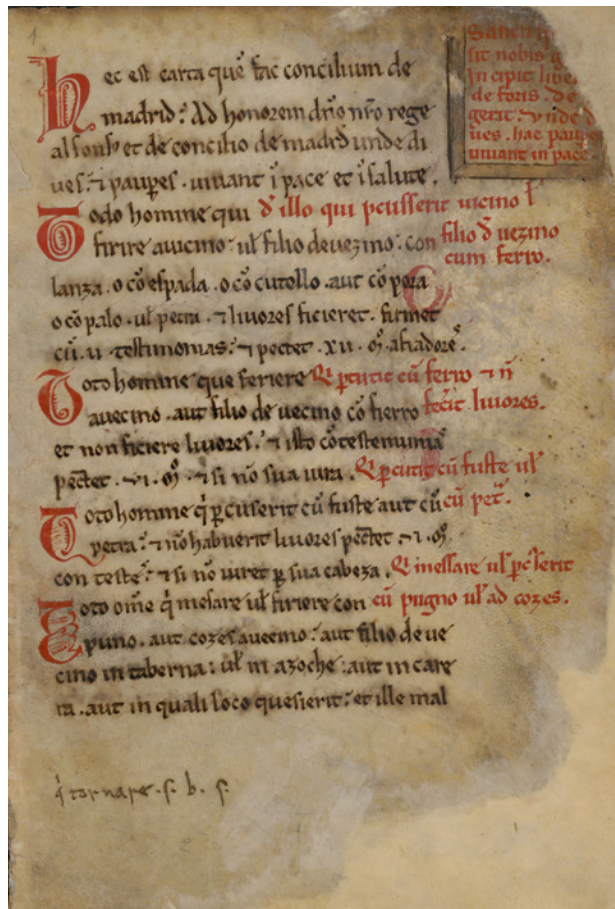 Sancti
sit nobis
Incipit libe
de foris . de
gerit . ⁊ unde d
ues . hac paup
uiuant in pace
hec est carta que fac concilium de
madrid : Ad honorem dño nr̃o rege
alfonsꝰ et de concilio de madrd unde di
ues . ⁊ pauꝑes . uiuant ĩ pace et ĩ salute .
Todo homine qui
đ illo qui ꝑcusserit uicino ł
firire auicino : uł filio de vezino : con
filio đ uezino
cum ferro .
lanza . o cõ espada . o cõ cutello . aut cõ pora
o cõ palo . uł petra . ⁊ liuores ficieret . firmet
cũ . ii . testimonias : ⁊ pectet . xv . m̊ . afiadores
Toto homine que feriere
Q̃ ꝑcutit cũ ferro ⁊ ñ
fec̃it liuores .
auecino . aut filio de uecino cõ fierro
et non ficiere liuores : ⁊ isto cõ testemunia
pectet . vi . m̊ . ⁊ si nõ sua iura .
Q̃ ꝑcutit cũ fuste uł
cũ pet̃ .
Toto homine q̃ ꝑcuserit cũ fuste aut cũ
petra : ⁊ nõ habuerit liuores pectet . i . m̊
con testes : ⁊ si nõ iuret ꝑ sua cabeza .
Q̃ messare uł ꝑcuserit
cũ pugno uł ad cozes .
Toto ome q̃ mesare uł firiere con
puno . aut cozes auecino : aut filio de ve
cino in taberna : uł in azoche : aut in care
ra . aut in quali loco quesierit : et ille mal
q̃ tornare . s . b . s .